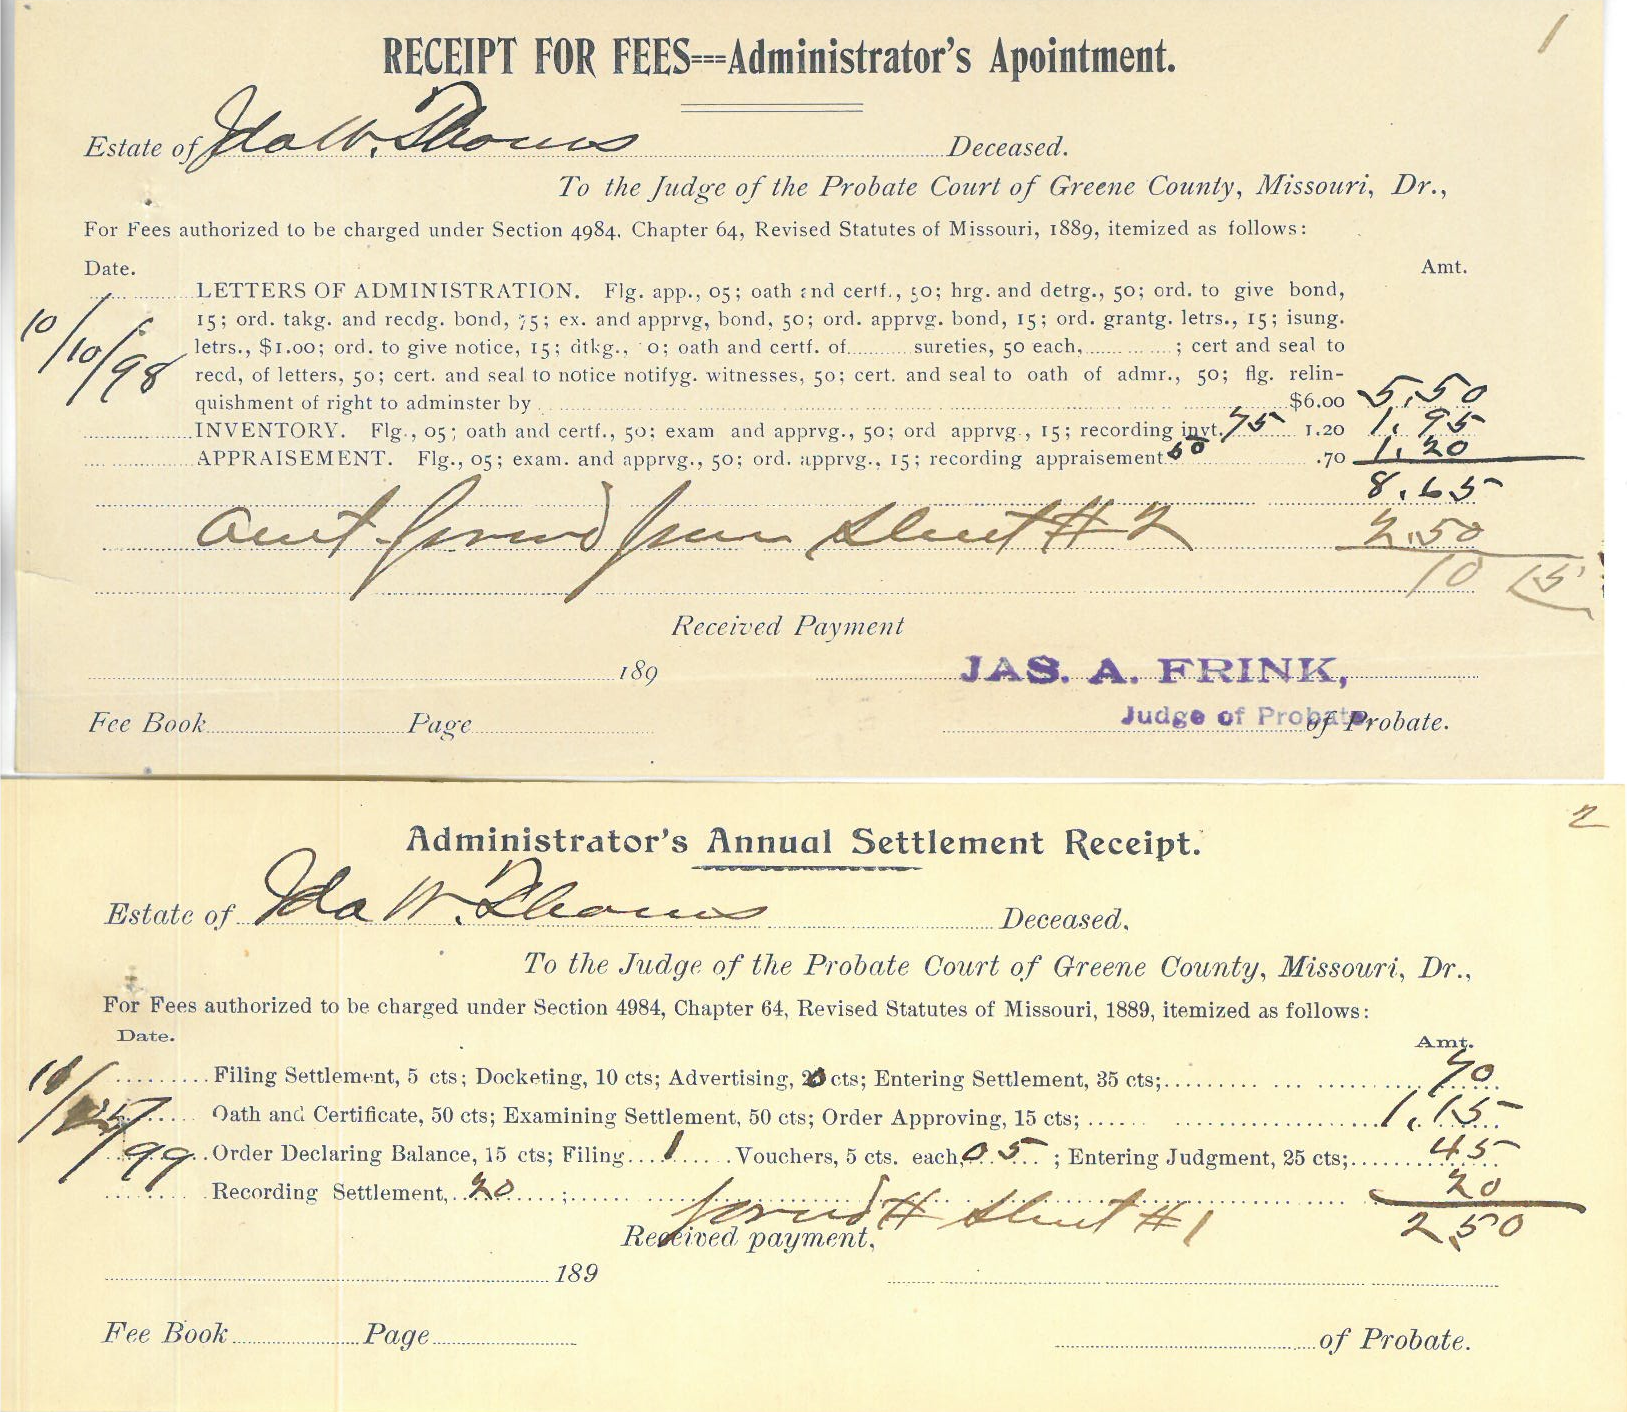 1
RECEIPT FOR FEES===Administrator's Apointment.
Estate of Ida W. Thoms Deceased.
To the Judge of the Probate Court of Greene County, Missouri, Dr.,
For Fees authorized to be charged under Section 4984. Chapter 64, Revised Statutes of Missouri, 1889, itemized as follows:
Date. Amt.
10/10/98
LETTERS OF ADMINISTRATION. Flg. app., 05; oath and certf., 50; hrg. and detrg., 50; ord. to give bond,
15; ord. takg. and recdg. bond, 75; ex. and apprvg, bond, 50; ord. apprvg. bond, 15; ord. grantg. letrs., 15; isung.
letrs., $1.00; ord. to give notice, 15; dtkg., 0; oath and certf. of sureties, 50 each, ; cert and seal to
recd, of letters, 50; cert. and seal to notice notifyg. witnesses, 50; cert. and seal to oath of admr., 50; flg. relin-
quishment of right to adminster by $6.00 5,50
INVENTORY. Flg., 05; oath and certf., 50; exam and apprvg., 50; ord apprvg., 15; recording invt. 75 1.20 1.95
APPRAISEMENT. Flg., 05; exam. and apprvg., 50; ord. apprvg., 15; recording appraisement 50 .70 1,20
8.65
Amt. forwd from Sheet #2 2.50
10 15
Received Payment
189 JAS. A. FRINK,
Judge of Probate
Fee Book Page of Probate.
2
Administrator's Annual Settlement Receipt.
Estate of Ida W. Thoms Deceased.
To the Judge of the Probate Court of Greene County, Missouri, Dr.,
For Fees authorized to be charged under Section 4984, Chapter 64, Revised Statutes of Missouri, 1889, itemized as follows:
Date. Amt.
Filing Settlement, 5 cts; Docketing, 10 cts; Advertising, 20 cts; Entering Settlement, 35 cts; 70
Oath and Certificate, 50 cts; Examining Settlement, 50 cts; Order Approving, 15 cts; 1.15
99 Order Declaring Balance, 15 cts; Filing 1 Vouchers, 5 cts. each, 05 ; Entering Judgment, 25 cts; 45
Recording Settlement, 20 ; 20
forwd # Sheet #1 2.50
Received payment,
189
Fee Book Page of Probate.